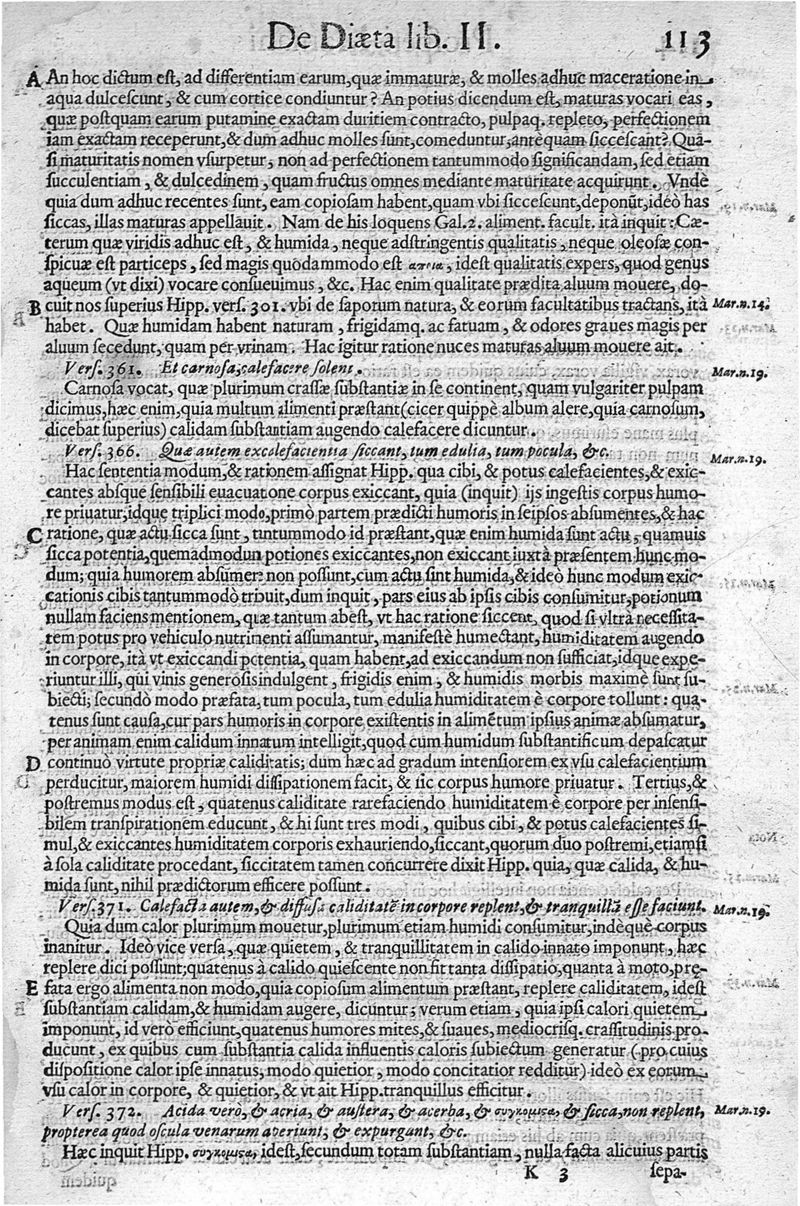 De Diæta lib. II. 113
A An hoc dictum est, ad differentiam earum, quæ immaturæ, & molles adhuc maceratione in
aqua dulcescunt, & cum cortice condiuntur? An potius dicendum est, maturas vocari eas,
quæ postquam earum putamine exactam duritiem contracto, pulpaq. repleto, perfectionem
iam exactam receperunt, & dum adhuc molles sunt, comeduntur, antequam siccescant? Qua-
si maturitatis nomen vsurpetur, non ad perfectionem tantummodo significandam, sed etiam
succulentiam, & dulcedinem, quam fructus omnes mediante maturitate acquirunt. Vndè
quia dum adhuc recentes sunt, eam copiosam habent, quam vbi siccescunt, deponũt, ideò has
siccas, illas maturas appellauit. Nam de his loquens Gal. 2. aliment. facult. ità inquit: Cæ-
terum quæ viridis adhuc est, & humida, neque adstringentis qualitatis, neque oleosæ con-
spicuæ est particeps, sed magis quodammodo est απεια, idest qualitatis expers, quod genus
aqueum (vt dixi) vocare consueuimus, &c. Hac enim qualitate prædita aluum mouere, do-
B cuit nos superius Hipp. vers. 301. vbi de saporum natura, & eorum facultatibus tractans, ità Mar.n.14.
habet. Quæ humidam habent naturam, frigidamq. ac fatuam, & odores graues magis per
aluum secedunt, quam per vrinam. Hac igitur ratione nuces maturas aluum mouere ait.
Vers. 361. Et carnosa, calefacere solent. Mar.n.19.
Carnosa vocat, quæ plurimum crassæ substantiæ in se continent, quam vulgariter pulpam
dicimus, hæc enim, quia multum alimenti præstant (cicer quippè album alere, quia carnosum,
dicebat superius) calidam substantiam augendo calefacere dicuntur.
Vers. 366. Quæ autem excalefacientia siccant, tum edulia, tum pocula, &c. Mar.n.19.
Hac sententia modum, & rationem assignat Hipp. qua cibi, & potus calefacientes, & exic-
cantes absque sensibili euacuatone corpus exiccant, quia (inquit) ijs ingestis corpus humo-
re priuatur, idque triplici modo, primò partem prædicti humoris in seipsos absumentes, & hac
C ratione, quæ actu sicca sunt, tantummodo id præstant, quæ enim humida sunt actu, quamuis
sicca potentia, quemadmodun potiones exiccantes, non exiccant iuxtà præsentem hunc mo-
dum; quia humorem absumere non possunt, cum actu sint humida, & ideò hunc modum exic-
cationis cibis tantummodò tribuit, dum inquit, pars eius ab ipsis cibis consumitur, potionum
nullam faciens mentionem, quæ tantum abest, vt hac ratione siccent, quod si vltrà necessita-
tem potus pro vehiculo nutrimenti assumantur, manifestè humectant, humiditatem augendo
in corpore, ità vt exiccandi potentia, quam habent, ad exiccandum non sufficiat, idque expe-
riuntur illi, qui vinis generosis indulgent, frigidis enim, & humidis morbis maximè sunt su-
biecti; secundò modo præfata, tum pocula, tum edulia humiditatem è corpore tollunt: qua-
tenus sunt causa, cur pars humoris in corpore existentis in alimẽtum ipsius animæ absumatur,
per animam enim calidum innatum intelligit, quod cum humidum substantificum depascatur
D continuò virtute propriæ caliditatis; dum hæc ad gradum intensiorem ex vsu calefacientium
perducitur, maiorem humidi dissipationem facit, & sic corpus humore priuatur. Tertius, &
postremus modus est, quatenus caliditate rarefaciendo humiditatem è corpore per insensi-
bilem transpirationem educunt, & hi sunt tres modi, quibus cibi, & potus calefacientes si-
mul, & exiccantes humiditatem corporis exhauriendo, siccant, quorum duo postremi, etiamsi
à sola caliditate procedant, siccitatem tamen concurrere dixit Hipp. quia, quæ calida, & hu-
mida sunt, nihil prædictorum efficere possunt.
Vers. 371. Calefacta autem, & diffusa caliditatẽ in corpore replent, & tranquillã esse faciunt. Mar.n.19.
Quia dum calor plurimum mouetur, plurimum etiam humidi consumitur, indèque corpus
inanitur. Ideò vice versa, quæ quietem, & tranquillitatem in calido innato imponunt, hæc
replere dici possunt; quatenus à calido quiescente non fit tanta dissipatio, quanta à moto, præ-
E fata ergo alimenta non modo, quia copiosum alimentum præstant, replere caliditatem, idest
substantiam calidam, & humidam augere, dicuntur; verum etiam, quia ipsi calori quietem
imponunt, id verò efficiunt, quatenus humores mites, & suaues, mediocrisq. crassitudinis pro-
ducunt, ex quibus cum substantia calida influentis caloris subiectum generatur (pro cuius
dispositione calor ipse innatus, modo quietior, modo concitatior redditur) ideò ex eorum
vsu calor in corpore, & quietior, & vt ait Hipp. tranquillus efficitur.
Vers. 372. Acida vero, & acria, & austera, & acerba, & συγκομιςα, & sicca, non replent, Mar.n.19.
propterea quod oscula venarum aperiunt, & expurgant, &c.
Hæc inquit Hipp. συγκομιςα, idest, secundum totam substantiam, nulla facta alicuius partis
K 3 sepa-